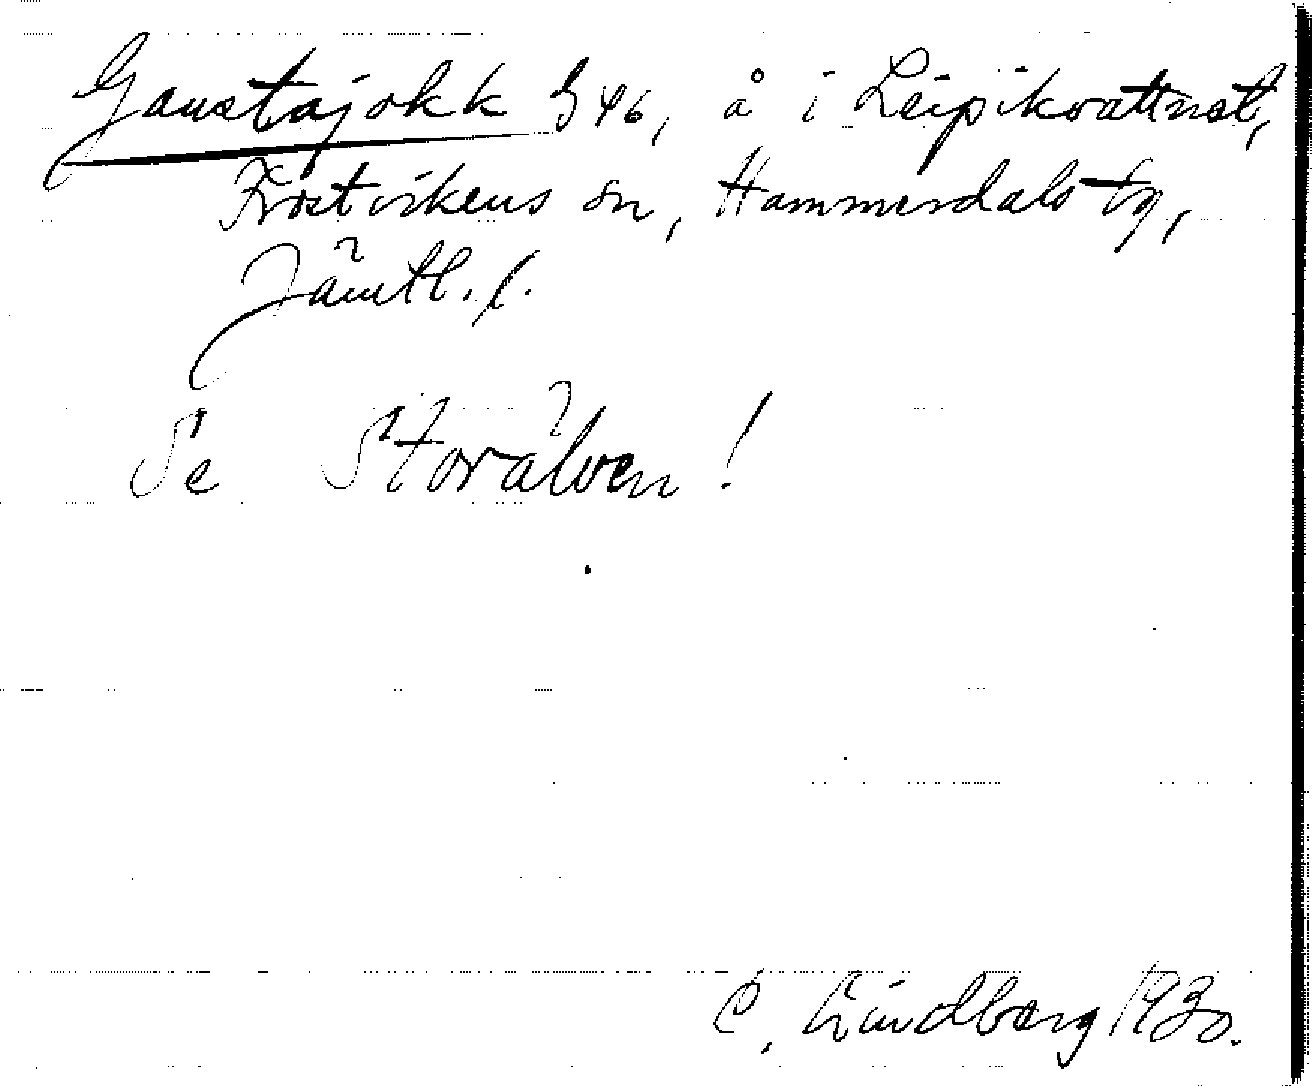 Gaustajokk G46, å i Leipikvattnet,
Frostvikens sn, Hammerdals tg,
Jämtl. l.
Se Storälven!
C. Lindberg 1930.